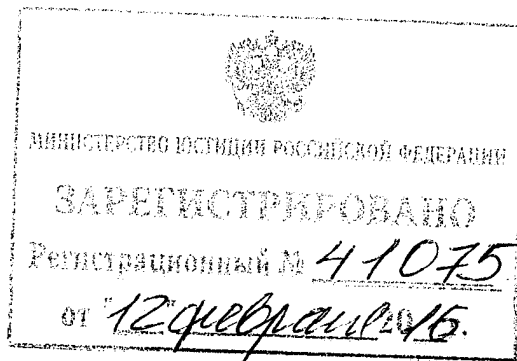 МИНИСТЕРСТВО ЮСТИЦИИ РОССИЙСКОЙ ФЕДЕРАЦИИ
ЗАРЕГИСТРИРОВАНО
Регистрационный № 41075
от "12" февраля 2016.